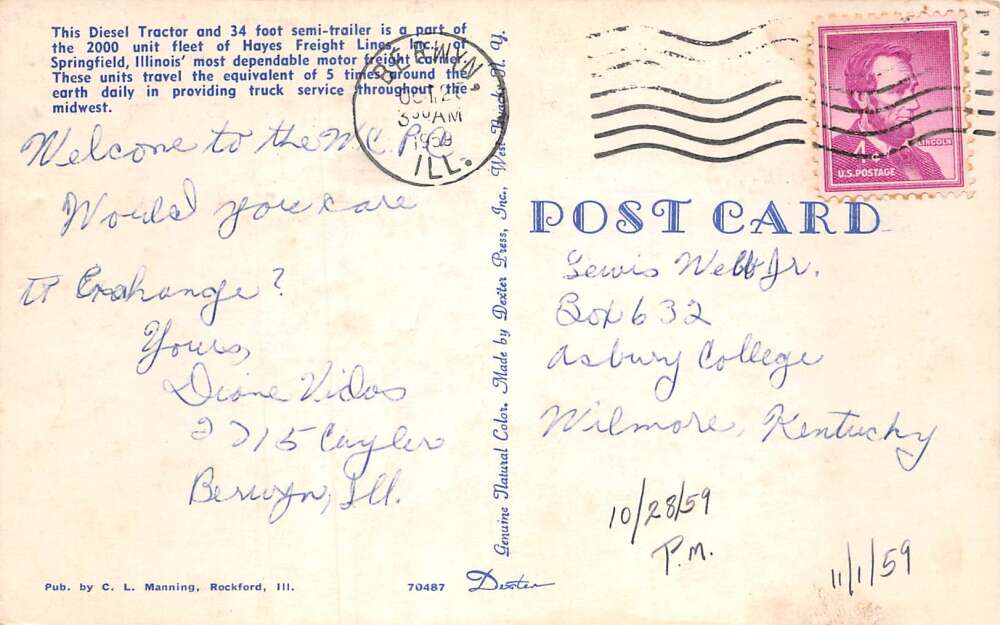 This Diesel Tractor and 34 foot semi-trailer is a part of
the 2000 unit fleet of Hayes Freight Lines, Inc., of
Springfield, Illinois' most dependable motor freight carrier.
These units travel the equivalent of 5 times around the
earth daily in providing truck service throughout the
midwest.
Welcome to the W.C.P.P.
Would you care
to Exchange?
Yours,
Diane Vidas
2715 Cuyler
Berwyn, Ill.
Pub. by C. L. Manning, Rockford, Ill.
70487
Dexter
BERWYN,
OCT 2
3 30 AM
1959
ILL.
Genuine Natural Color. Made by Dexter Press, Inc., West Nyack, N. Y.
LINCOLN
4¢
U.S. POSTAGE
POST CARD
Lewis Webb Jr.
Box 632
Asbury College
Wilmore, Kentucky
10/28/59
P.M.
11/1/59